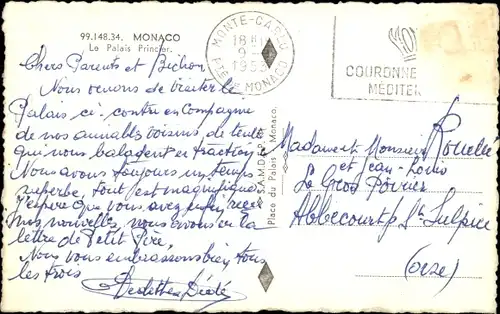 99.148.34. MONACO
Le Palais Princier.
MONTE-CARLO
18H
9
1953
Pté MONACO
COURONNE
MEDITER
Chers Parents et Bichon
Nous venons de visiter le
Palais ci-contre en Compagnie
de nos aimables voisins de tente
qui nous baladent en traction
Nous avons toujours un temps
superbe, tout est magnifique
J'espère que vous avez enfin reçu
mes nouvelles, nous avons eu la
lettre de Petit Père.
Nous vous embrassons bien tous
les trois
Dédé
S.A.M.D.E.P.
Place du Palais - Monaco.
Madame et Monsieur Rouelle
et Jean-Louis
Le Gros Poirier
Abbecourt p. St Sulpice
(oise)